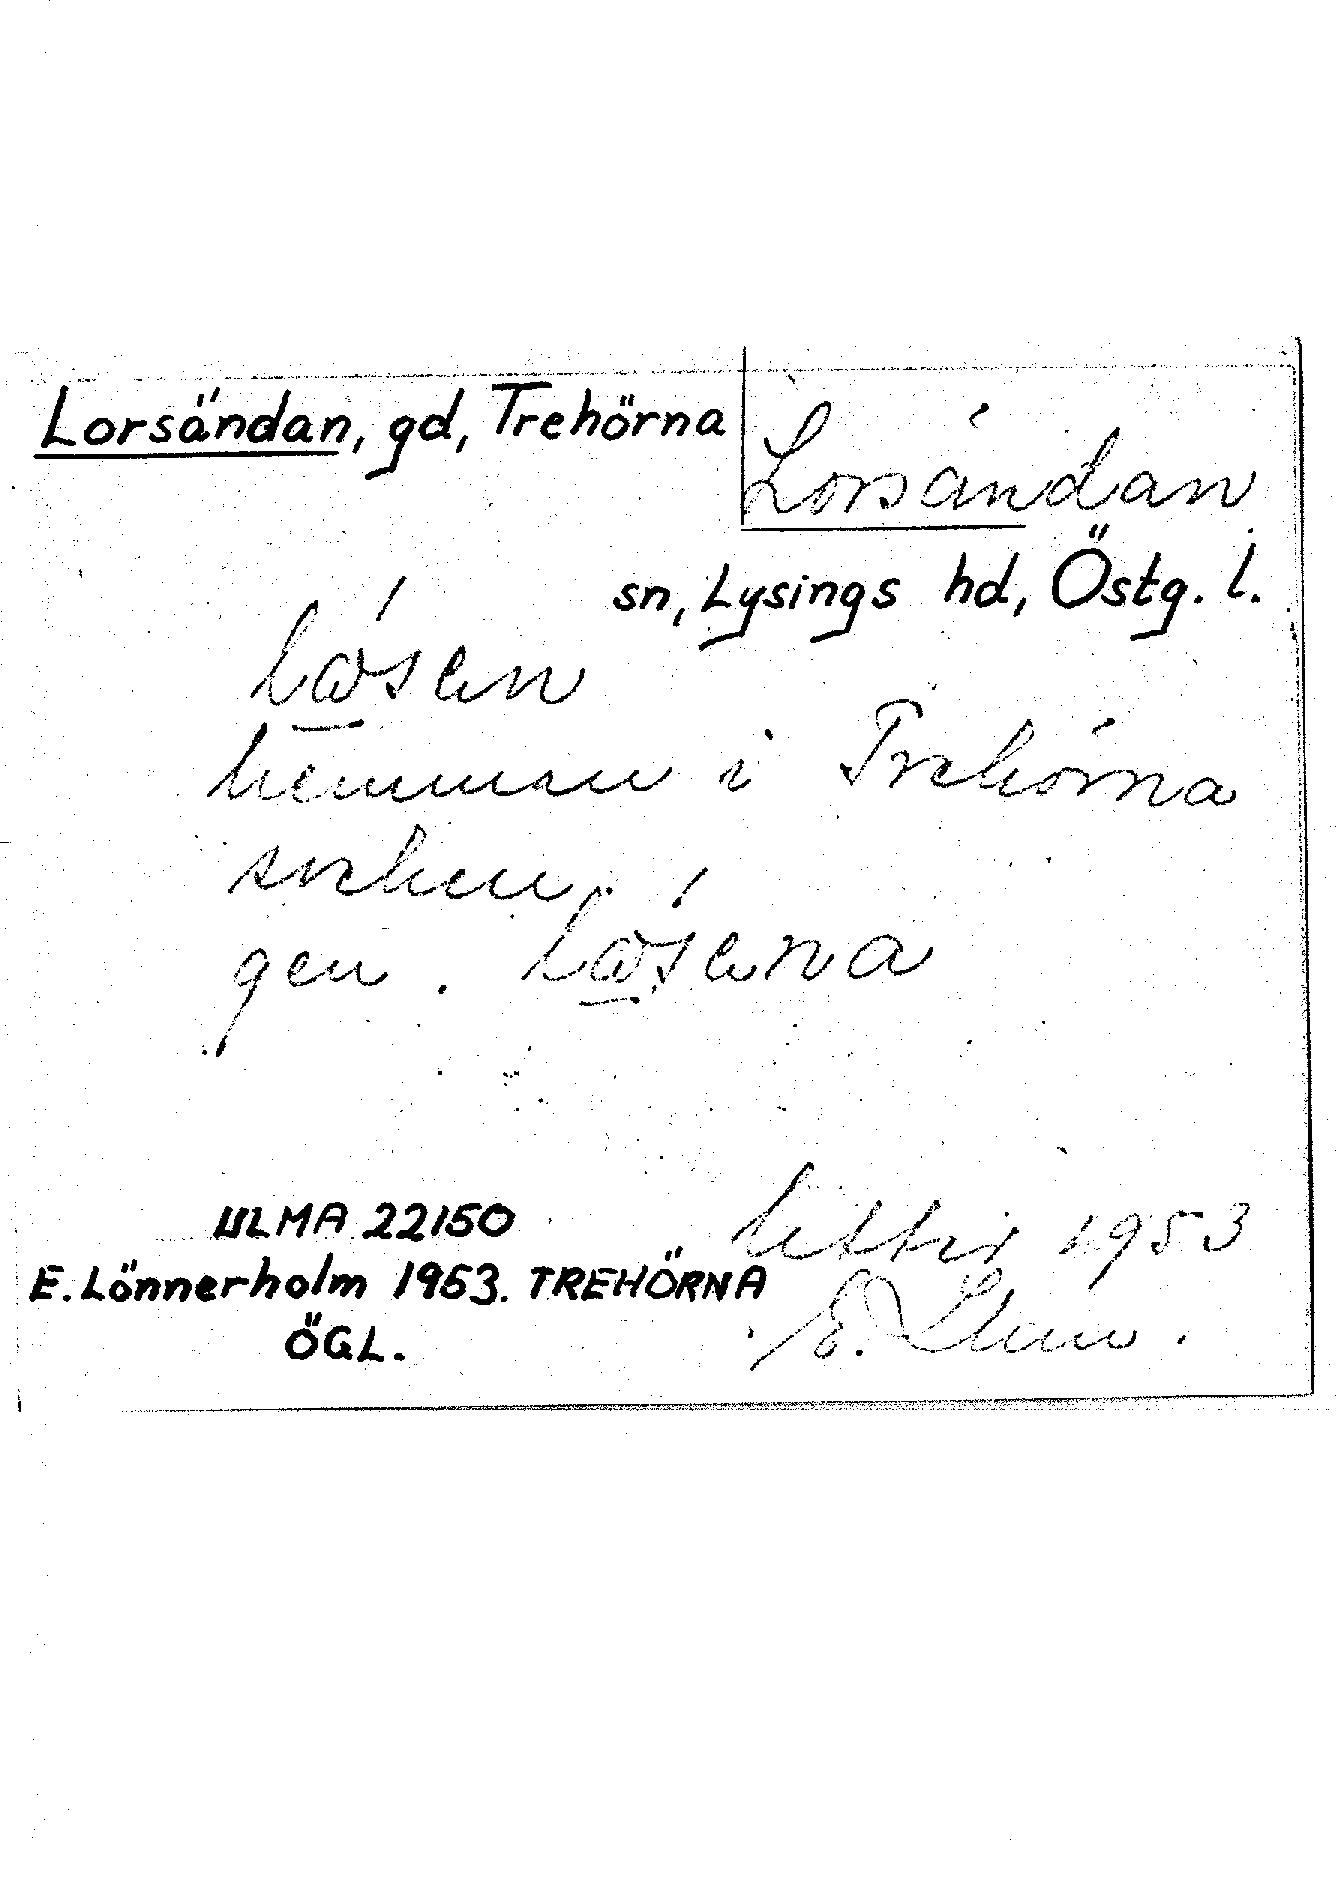 Lorsändan, gd, Trehörna
Lorsändan
sn, Lysings hd, Östg. l.
hemman i Trehörna
socken
gen.
ULMA 22150
1953
E. Lönnerholm 1953. TREHÖRNA
ÖGL.